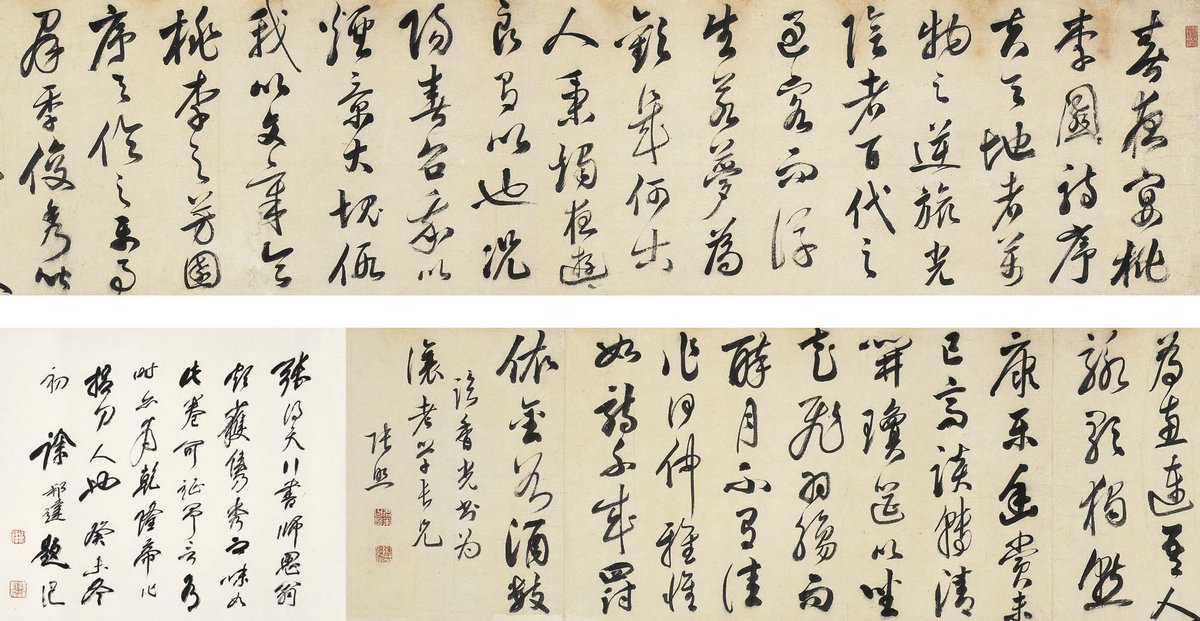 春夜宴桃
李園詩序
夫天地者萬
物之逆旅光
陰者百代之
過客而浮
生若夢為
歡幾何古
人秉燭夜遊
良有以也況
陽春召我以
煙景大塊假
我以文章會
桃李之芳園
序天倫之樂事
群季俊秀皆
為惠連吾人
詠歌獨慙
康樂幽賞未
已高談轉清
開瓊筵以坐
花飛羽觴而
醉月不有佳
作何伸雅懷
如詩不成罰
依金谷酒數
臨香光書為
瀼老學長兄
張照
張得天行書師思翁
頗獲雋秀之味如
此卷可証予言
時乾隆帝作
捉刀人也癸未冬
初徐邦達題記